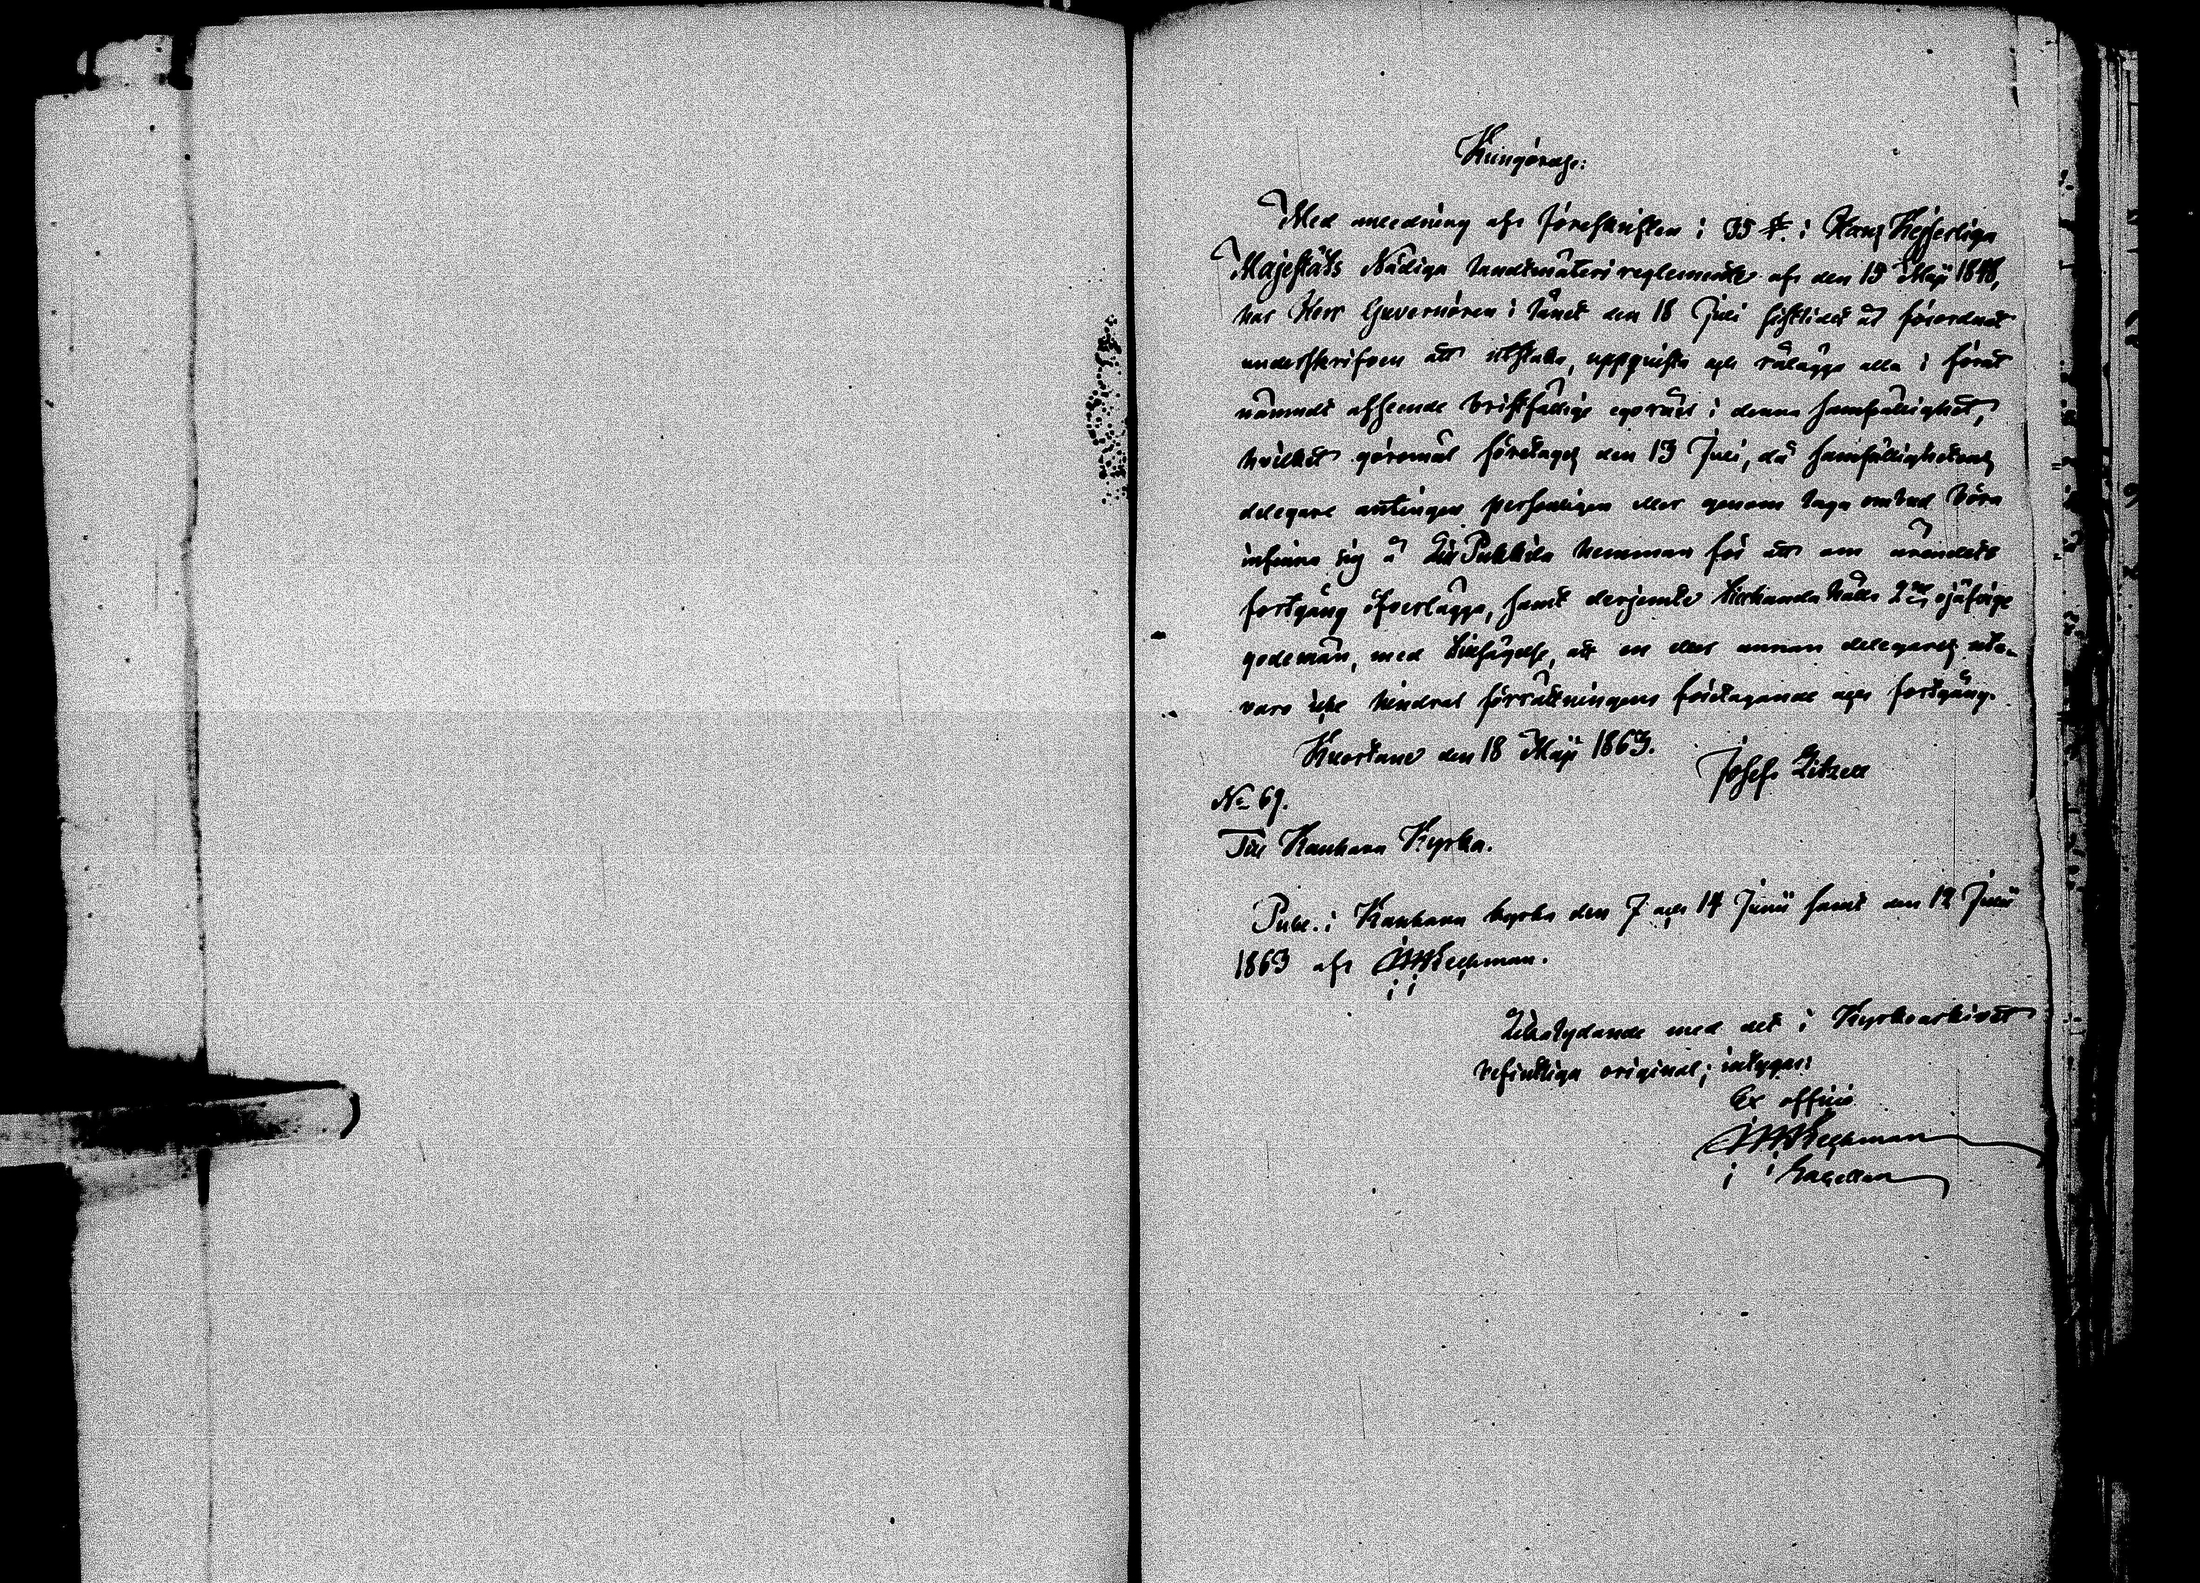 Kungörelse:
Med anledning af föreskriften i 35 §. i Hans Kejserliga
Majestäts Nådiga landtmäterireglemente af den 15 Maji 1848,
har Herr Guvernören i länet den 18 Juli sistlidet år förordnat
underskrifven att utstaka, uppqvista och rålägga alla i förut
nämndt afseende bristfällige egoråer i denna samfällighet,
hvilket göromål företages den 13 Juli, då samfällighetens
delegare antingen personligen eller genom laga ombud böra
infinna sig å Lill Pukkila hemman för att om ärendets
fortgång öfverlägga, samt derjemte tillhandahålla 2ne ojäfvige
godemän, med tillsägelse, att en eller annan delegares ute-
varo icke hindrar förrättningens företagande och fortgång.
Kuortane den 18 Maji 1863. Josef Litzell
No 69.
Till Kauhava Kyrka.
Publ. i Kauhava kyrka den 7 och 14 Junii samt den 12 Julii
1863 af Bechman.
Likalydande med det i Kyrkoarkivet
befintliga original; intygar:
Ex officio
Bechman
Sacellan